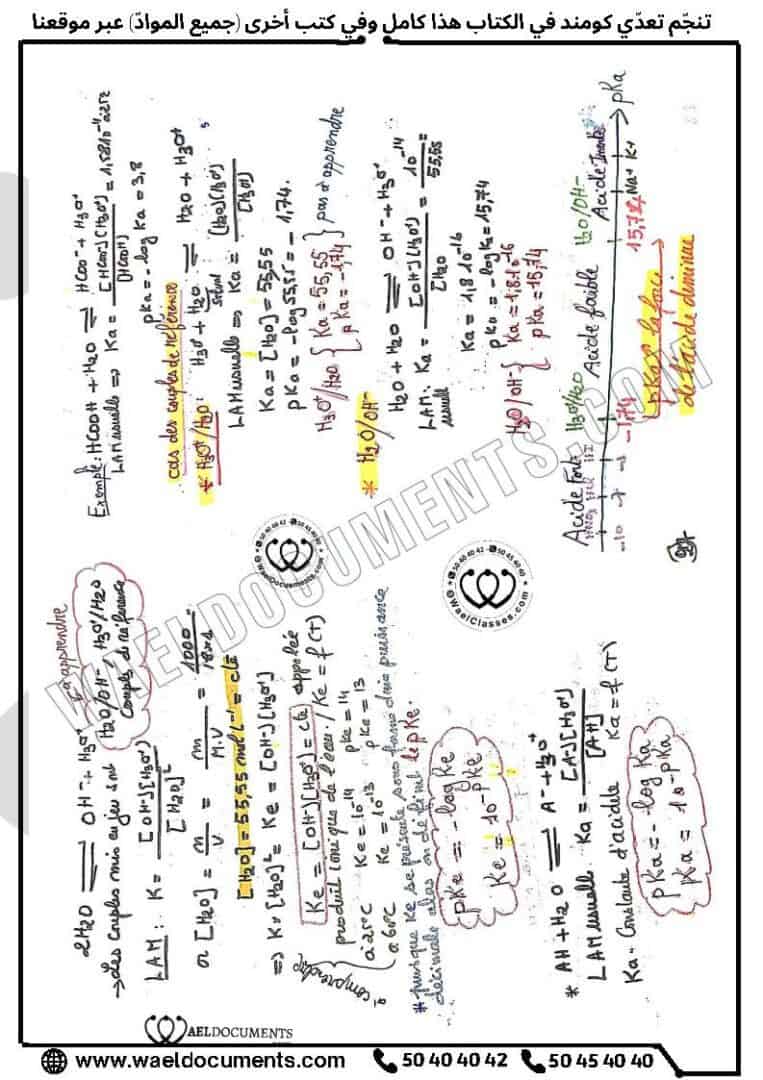 تنجّم تعدّي كومند في الكتاب هذا كامل وفي كتب أخرى (جميع الموادّ) عبر موقعنا
2H2O ⇌ OH⁻ + H3O⁺
à apprendre
→ Les couples mis en jeu sont H2O/OH⁻ H3O⁺/H2O
Couples de référence
LAM : K = [OH⁻][H3O⁺] / [H2O]²
or [H2O] = n/V = m/M.V = 1000/18×1
[H2O] = 55,55 mol L⁻¹ = cte
⇒ K×[H2O]² = Ke = [OH⁻][H3O⁺]
Ke = [OH⁻][H3O⁺] = cte appelée
produit ionique de l'eau / Ke = f(T)
à comprendre
à 25°C Ke = 10⁻¹⁴ pKe = 14
à 60°C Ke = 10⁻¹³ pKe = 13
* puisque Ke se présente sous forme d'une puissance
décimale alors on définit le pKe.
pKe = -log Ke
Ke = 10⁻ᵖᴷᵉ
* AH + H2O ⇌ A⁻ + H3O⁺
LAM usuelle Ka = [A⁻][H3O⁺] / [AH]
Ka = Constante d'acidité Ka = f(T)
pKa = -log Ka
Ka = 10⁻ᵖᴷᵃ
Exemple: HCOOH + H2O ⇌ HCOO⁻ + H3O⁺
LAM usuelle ⇒ Ka = [HCOO⁻][H3O⁺] / [HCOOH] = 1,58 10⁻⁴
pKa = -log Ka = 3,8
cas des couples de référence
* H3O⁺/H2O : H3O⁺ + H2O ⇌ H2O + H3O⁺
LAM usuelle ⇒ Ka = [H2O][H3O⁺] / [H3O⁺]
Ka = [H2O] = 55,55
pKa = -log 55,55 = -1,74.
H3O⁺/H2O { Ka = 55,55
pKa = -1,74 } pas à apprendre
* H2O/OH⁻
H2O + H2O ⇌ OH⁻ + H3O⁺
LAM usuelle : Ka = [OH⁻][H3O⁺] / [H2O] = 10⁻¹⁴ / 55,55 =
Ka = 1,8 10⁻¹⁶
pKa = -log Ka = 15,74
H2O/OH⁻ { Ka = 1,8 10⁻¹⁶
pKa = 15,74
Acide Fort H3O⁺/H2O Acide faible H2O/OH⁻ Acide Inerte
-10 -7 -1,74 15,74 Na⁺ K⁺ pKa
pKa ↗ la force
de l'acide diminue
WAELDOCUMENTS.COM
50 40 40 42 - 50 45 40 40
WaelDocuments.com
50 40 40 42 - 50 45 40 40
@WaelClasses.com
WAELDOCUMENTS
www.waeldocuments.com 50 40 40 42 50 45 40 40